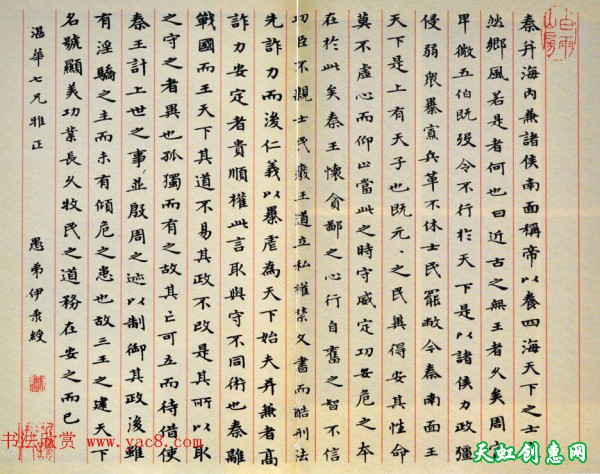 秦并海內兼諸侯南面稱帝以養四海天下之士
然鄉風若是者何也曰近古之無王者久矣周室
卑微五伯既殁令不行於天下是以諸侯力政彊
侵弱眾暴寡兵革不休士民罷敝今秦南面王
天下是上有天子也既元〻之民冀得安其性命
莫不虛心而仰上當此之時守威定功安危之本
在於此矣秦王懷貪鄙之心行自奮之智不信
功臣不親士民廢王道立私權禁文書而酷刑法
先詐力而後仁義以暴虐為天下始夫并兼者高
詐力安定者貴順權此言取與守不同術也秦離
戰國而王天下其道不易其政不改是其所以取
之守之者異也孤獨而有之故其亡可立而待借使
秦王計上世之事並殷周之迹以制御其政後雖
有淫驕之主而未有傾危之患也故三王之建天下
名號顯美功業長久牧民之道務在安之而已
湛華七兄雅正 愚弟伊秉綬
白雨山房
书法欣赏 www.yac8.com
天虹创意网